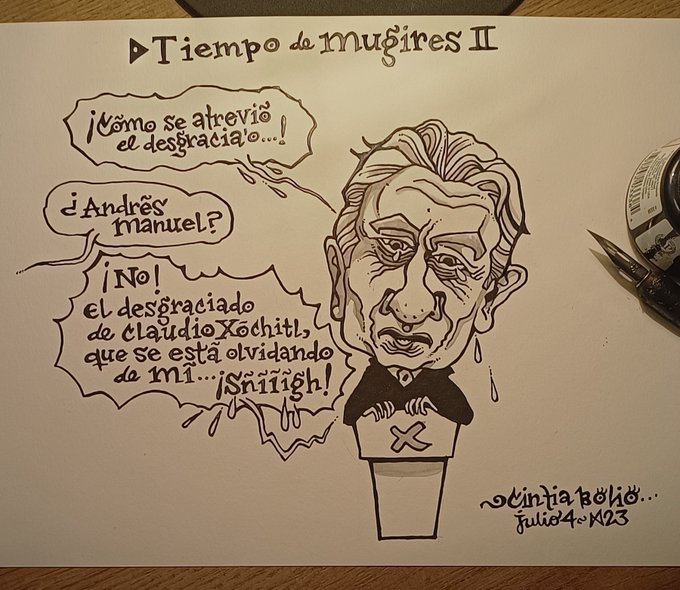 Tiempo de mugires II
¡Cõmo se atreviõ
el desgracia'o...!
¿Andrẽs
manuel?
¡No!
El desgraciado
de Claudio Xóchitl,
que se estã olvidando
de mĩ... ¡Sñiiigh!
X
Cintia Bolio...
julio 4~23